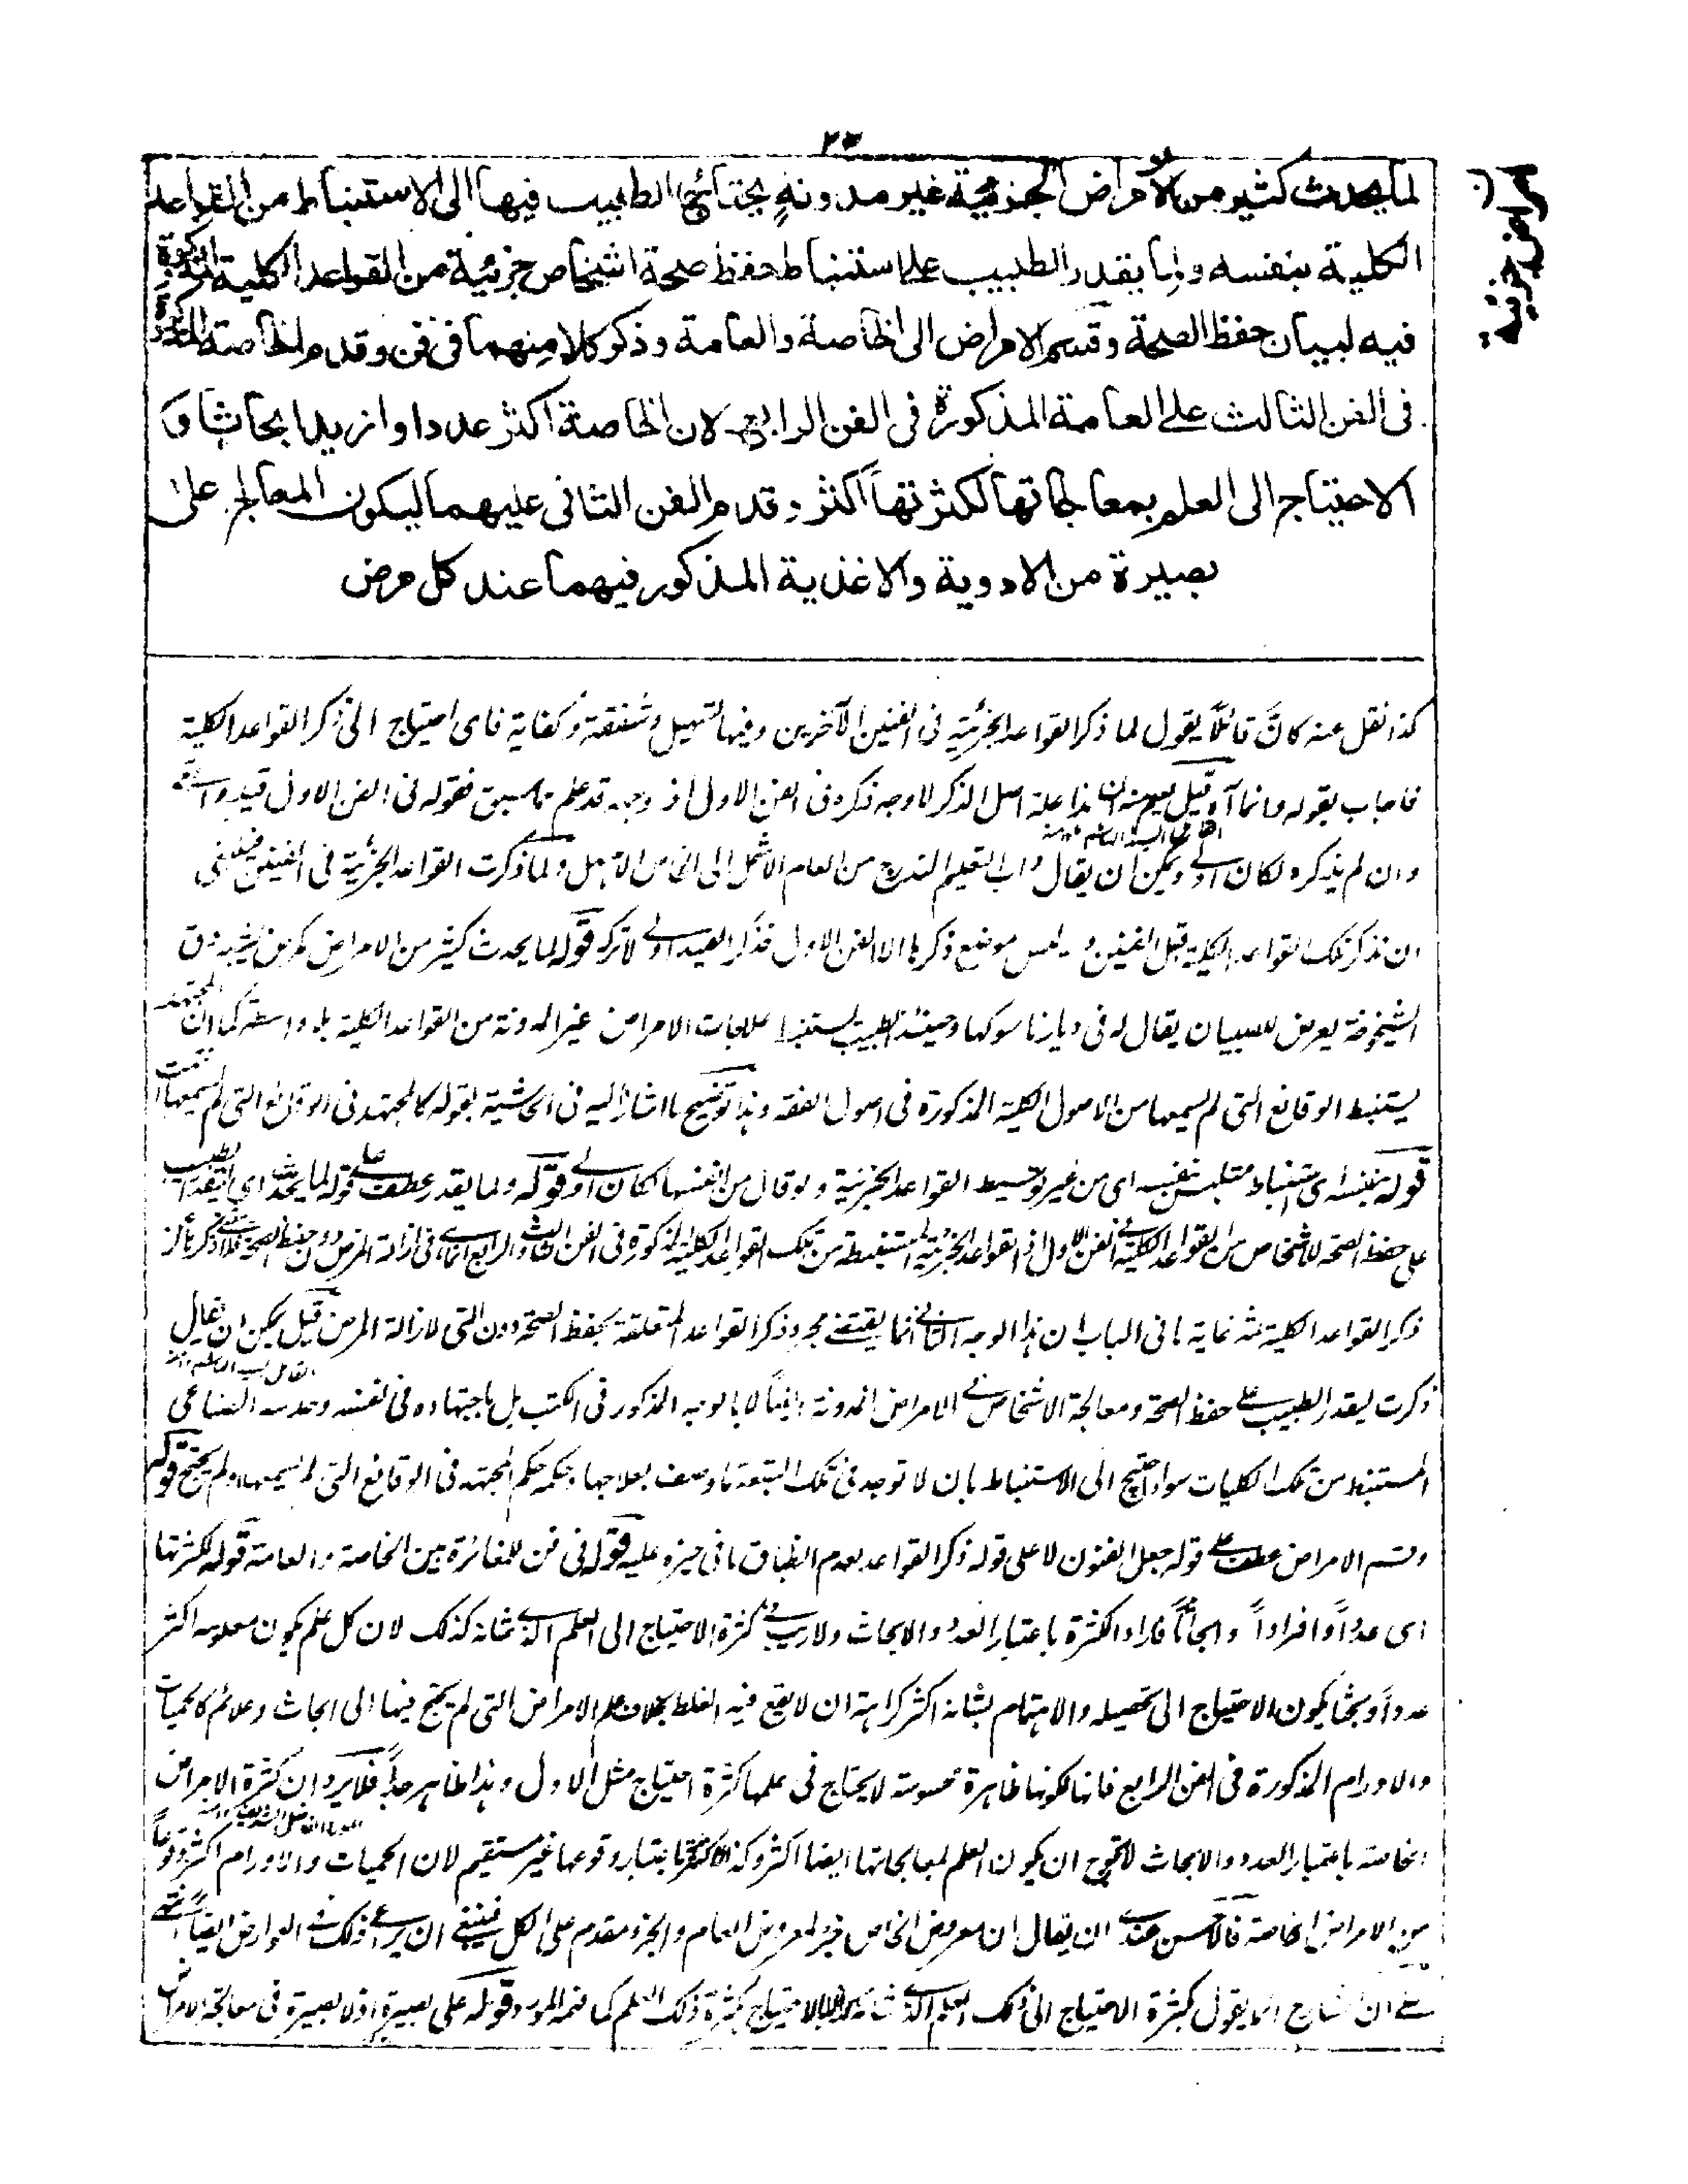 ٢٣
لما يحدث كثير من الامراض الجزئية غير مدونة يحتاج الطبيب فيها الى الاستنباط من القواعد
الكلية بنفسه ولما يقدر الطبيب على استنباط حفظ صحة اشخاص جزئية من القواعد الكلية المذكورة
فيه لبيان حفظ الصحة وقسم الامراض الى الخاصة والعامة وذكر كلا منهما فى فن وقدم الخاصة المذكورة
فى الفن الثالث على العامة المذكورة فى الفن الرابع لان الخاصة اكثر عددا وازيد ابحاثا و
الاحتياج الى العلم بمعالجاتها لكثرتها اكثر وقدم الفن الثانى عليهما ليكون المعالج على
بصيرة من الادوية والاغذية المذكور فيهما عند كل مرض
كذا نقل عنه كان قائلا يقول لما ذكر القواعد الجزئية فى الفنين الآخرين وفيها تسهيل وشفقة وكفاية فاى احتياج الى ذكر القواعد الكلية
فاجاب بقوله وانما آه قيل هذا علة اصل الذكر لا وجه ذكره فى الفن الاول اذ وجهه قد علم مما سبق فقوله فى الفن الاول قيد
وان لم يذكره لكان اولى ويمكن ان يقال داب التعليم التدرج من العام الاشمل الى الخاص ولما ذكرت القواعد الجزئية فى الفنين فينبغى
ان تذكر تلك القواعد الكلية قبل الفنين وليس موضع ذكرها الا الفن الاول فذكر القيد اولى لا تركه قوله لما يحدث كثير من الامراض كمرض يشبه دق
الشيخوخة يعرض للصبيان يقال له فى ديارنا سوكها وحينئذ الطبيب يستنبط علاجات الامراض غير المدونة من القواعد الكلية بلا واسطة كما ان المجتهد
يستنبط الوقائع التى لم يسمعها من الاصول الكلية المذكورة فى اصول الفقه وهذا توضيح ما اشار اليه فى الحاشية بقوله كالمجتهد فى الوقائع التى لم يسمعها
قوله بنفسه اى استنباط متلبس بنفسه اى من غير توسيط القواعد الجزئية ولو قال من انفسها لكان اولى قوله ولما يقدر عطف على قوله لما يحدث اى ليقدر الطبيب
على حفظ الصحة للاشخاص من القواعد الكلية فى الفن الاول اذ القواعد الجزئية المستنبطة من تلك القواعد الكلية المذكورة فى الفن الثالث والرابع انما هى فى ازالة المرض دون حفظ الصحة
ذكر القواعد الكلية ثمه غاية ما فى الباب ان هذا الوجه الثانى انما يقتضى مجرد ذكر القواعد المتعلقة بحفظ الصحة دون التى لازالة المرض قيل يمكن ان يقال
ذكرت ليقدر الطبيب على حفظ الصحة ومعالجة الاشخاص فى الامراض المدونة ايضا لا بالوجه المذكور فى الكتب بل باجتهاده فى نفسه وحدسه الصناعى
المستنبط من تلك الكليات سواء احتيج الى الاستنباط بان لا توجد فى تلك البقعة ما وصف بعلاجها وحكمه حكم المجتهد فى الوقائع التى لم يسمعها او لم يحتج قوله
وقسم الامراض عطف على قوله جعل الفنون لا على قوله ذكر القواعد لعدم انطباق ما فى حيزه عليه قوله فى فن للمغائرة بين الخاصة والعامة قوله لكثرتها
اى عددا وافرادا وابحاثا فاراد الكثرة باعتبار العدد والابحاث ولا ريب فى كثرة الاحتياج الى العلم الذى شانه كذلك لان كل علم يكون معلومه اكثر
عددا وبحثا يكون الاحتياج الى تحصيله والاهتمام بشانه اكثر كراهة ان لا يقع فيه الغلط بخلاف علم الامراض التى لم يحتج فيها الى ابحاث وعلائم كالحميات
والاورام المذكورة فى الفن الرابع فانها لكونها ظاهرة محسوسة لا يحتاج فى علمها كثرة احتياج مثل الاول وهذا ظاهر جدا فلا يرد ان كثرة الامراض
الخاصة باعتبار العدد والابحاث لا تحوج ان يكون العلم بمعالجاتها ايضا اكثر وكذا الكثرة باعتبار وقوعها غير مستقيم لان الحميات والاورام اكثر وقوعا
من الامراض الخاصة فالاحسن عندى ان يقال ان معروض الخاص جزء لمعروض العام والجزء مقدم على الكل فينبغى ان يراعى ذلك فى العوارض ايضا انتهى
على ان الشارح انما يقول كثرة الاحتياج الى ذلك العلم الذى شانه كذا لا الاحتياج بكثرة ذلك العلم كما فهمه المورد قوله على بصيرة اذ لا بصيرة فى معالجة الامراض